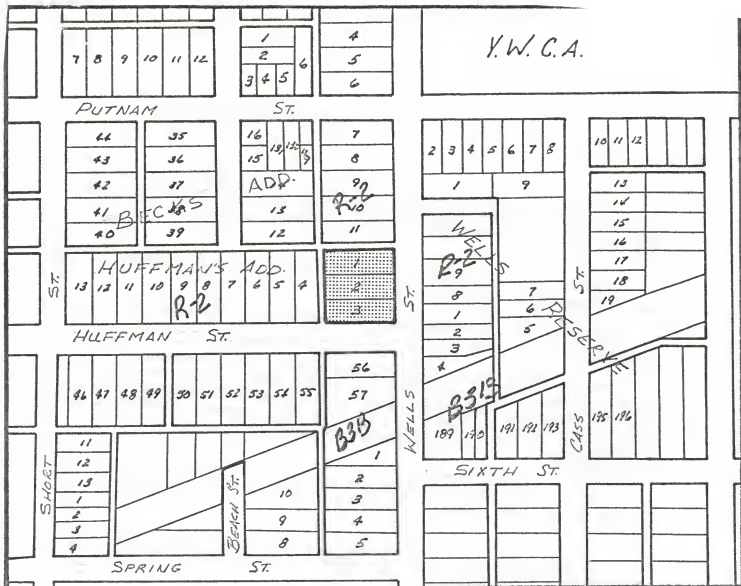 Y.W.C.A.
7 8 9 10 11 12
1
2
3 4 5 6
4
5
6
PUTNAM ST.
44 35
43 36
42 37
41 38
40 39
BECK'S ADD.
16
15
13
12
7
8
9
10
11
R-2
2 3 4 5 6 7 8
1 9
10 11 12
13
14
15
16
17
18
19
HUFFMAN'S ADD.
13 12 11 10 9 8 7 6 5 4
R-2
1
2
3
ST.
ST.
ST.
WELLS RESERVE
R-2
9
8
1
2
3
4
7
6
5
HUFFMAN ST.
46 47 48 49 50 51 52 53 54 55
56
57
B3B
B3B
WELLS
189 190 191 192 193
CASS
195 196
SIXTH ST.
SHORT
11
12
13
1
2
3
4
BEACH ST.
10
9
8
1
2
3
4
5
SPRING ST.